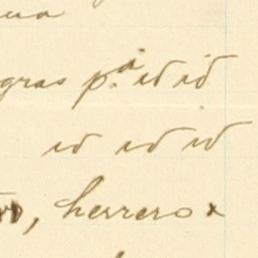 gras p.ª id id
id id id
, herrero